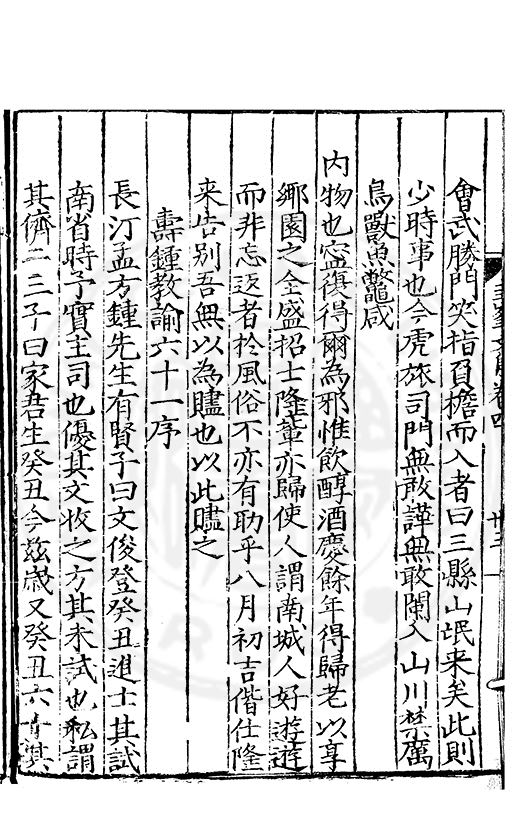 會武勝門笑指負擔而入者曰三縣山氓来矣此則
少時事也今虎旅司門無敢譁無敢闌入山川禁厲
鳥獸魚鼈咸
内物也寍復得爾為邪惟飲醇酒慶餘年得歸老以享
鄉園之全盛招士隆輩亦歸使人謂南城人好遊遊
而非忘返者於風俗不亦有助乎八月初吉偕仕隆
来告别吾無以為贐也以此贐之
壽鍾教諭六十一序
長汀孟方鍾先生有賢子曰文俊登癸丑進士其試
南省時予實主司也優其文收之方其未試也私謂
其儕二三子曰家君生癸丑今兹歳又癸丑六十其
文
卷四
廿三